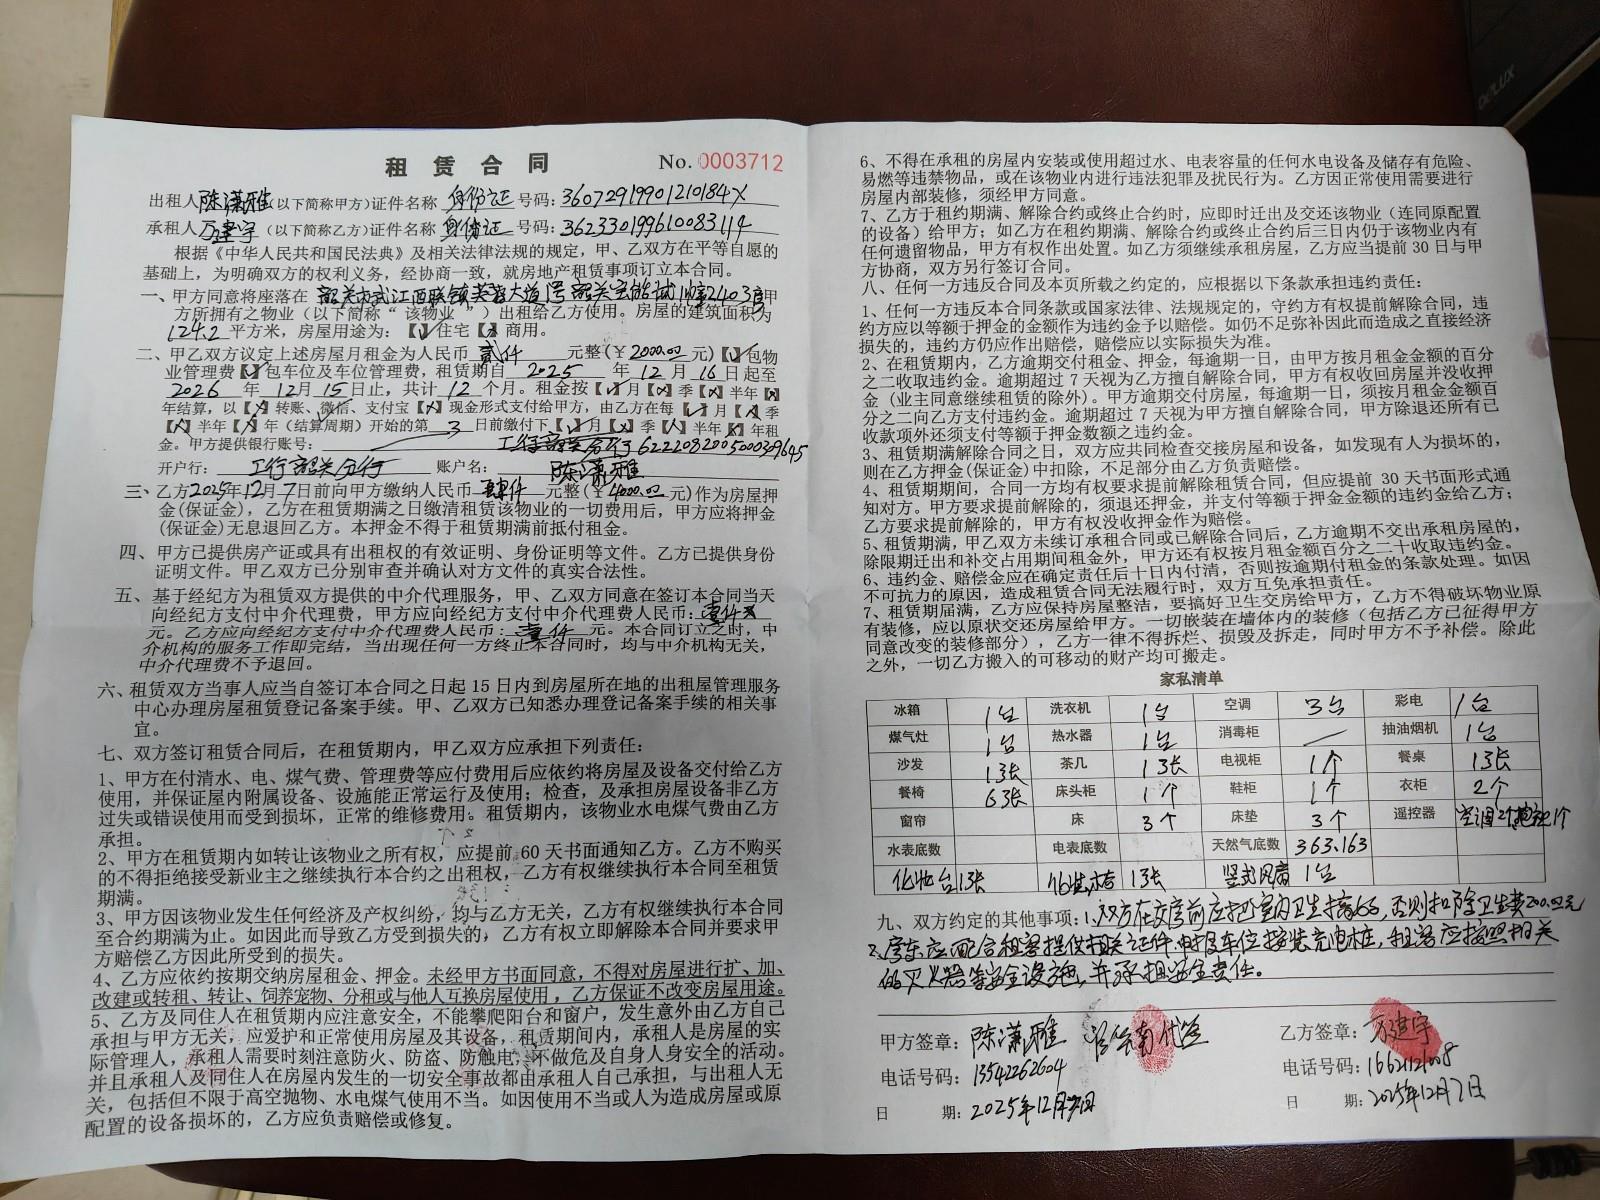 租 赁 合 同 No. 0003712
出租人陈潇雅(以下简称甲方)证件名称 身份证 号码:36072919901210184X
承租人万建宇(以下简称乙方)证件名称 身份证 号码:362330199610083114
根据《中华人民共和国民法典》及相关法律法规的规定,甲、乙双方在平等自愿的
基础上,为明确双方的权利义务,经协商一致,就房地产租赁事项订立本合同。
一、甲方同意将座落在 韶关市武江西联镇芙蓉大道 号韶关 城 幢2403房 甲
方所拥有之物业(以下简称“该物业”)出租给乙方使用。房屋的建筑面积为
124.2 平方米,房屋用途为:【√】住宅【 】商用。
二、甲乙双方议定上述房屋月租金为人民币 贰仟 元整(¥2000.00元)【√】包物
业管理费【√】包车位及车位管理费,租赁期自 2025 年 12 月 16 日起至
2026 年 12月 15日止,共计 12 个月。租金按【√】月【×】季【×】半年【×】
年结算,以【√】转账、微信、支付宝【×】现金形式支付给甲方,由乙方在每【√】月【×】季
【×】半年【×】年(结算周期)开始的第 3 日前缴付下【√】月【×】季【×】半年【×】年租
金。甲方提供银行账号: 工行韶关分行 6222082005000309645
开户行: 工行韶关分行 账户名: 陈潇雅
三、乙方2025年12月7日前向甲方缴纳人民币 肆仟 元整(¥4000.00元)作为房屋押
金(保证金),乙方在租赁期满之日缴清租赁该物业的一切费用后,甲方应将押金
(保证金)无息退回乙方。本押金不得于租赁期满前抵付租金。
四、甲方已提供房产证或具有出租权的有效证明、身份证明等文件。乙方已提供身份
证明文件。甲乙双方已分别审查并确认对方文件的真实合法性。
五、基于经纪方为租赁双方提供的中介代理服务,甲、乙双方同意在签订本合同当天
向经纪方支付中介代理费,甲方应向经纪方支付中介代理费人民币:壹仟
元。乙方应向经纪方支付中介代理费人民币:壹仟 元。本合同订立之时,中
介机构的服务工作即完结,当出现任何一方终止本合同时,均与中介机构无关,
中介代理费不予退回。
六、租赁双方当事人应当自签订本合同之日起 15 日内到房屋所在地的出租屋管理服务
中心办理房屋租赁登记备案手续。甲、乙双方已知悉办理登记备案手续的相关事
宜。
七、双方签订租赁合同后,在租赁期内,甲乙双方应承担下列责任:
1、甲方在付清水、电、煤气费、管理费等应付费用后应依约将房屋及设备交付给乙方
使用,并保证屋内附属设备、设施能正常运行及使用;检查,及承担房屋设备非乙方
过失或错误使用而受到损坏,正常的维修费用。租赁期内,该物业水电煤气费由乙方
承担。
2、甲方在租赁期内如转让该物业之所有权,应提前 60 天书面通知乙方。乙方不购买
的不得拒绝接受新业主之继续执行本合约之出租权,乙方有权继续执行本合同至租赁
期满。
3、甲方因该物业发生任何经济及产权纠纷,均与乙方无关,乙方有权继续执行本合同
至合约期满为止。如因此而导致乙方受到损失的,乙方有权立即解除本合同并要求甲
方赔偿乙方因此所受到的损失。
4、乙方应依约按期交纳房屋租金、押金。未经甲方书面同意,不得对房屋进行扩、加、
改建或转租、转让、饲养宠物、分租或与他人互换房屋使用,乙方保证不改变房屋用途。
5、乙方及同住人在租赁期内应注意安全,不能攀爬阳台和窗户,发生意外由乙方自己
承担与甲方无关,应爱护和正常使用房屋及其设备,租赁期间内,承租人是房屋的实
际管理人,承租人需要时刻注意防火、防盗、防触电;不做危及自身人身安全的活动。
并且承租人及同住人在房屋内发生的一切安全事故都由承租人自己承担,与出租人无
关,包括但不限于高空抛物、水电煤气使用不当。如因使用不当或人为造成房屋或原
配置的设备损坏的,乙方应负责赔偿或修复。
6、不得在承租的房屋内安装或使用超过水、电表容量的任何水电设备及储存有危险、
易燃等违禁物品,或在该物业内进行违法犯罪及扰民行为。乙方因正常使用需要进行
房屋内部装修,须经甲方同意。
7、乙方于租约期满、解除合约或终止合约时,应即时迁出及交还该物业(连同原配置
的设备)给甲方;如乙方在租约期满、解除合约或终止合约后三日内仍于该物业内有
任何遗留物品,甲方有权作出处置。如乙方须继续承租房屋,乙方应当提前 30 日与甲
方协商,双方另行签订合同。
八、任何一方违反合同及本页所载之约定的,应根据以下条款承担违约责任:
1、任何一方违反本合同条款或国家法律、法规规定的,守约方有权提前解除合同,违
约方应以等额于押金的金额作为违约金予以赔偿。如仍不足弥补因此而造成之直接经济
损失的,违约方仍应作出赔偿,赔偿应以实际损失为准。
2、在租赁期内,乙方逾期交付租金、押金,每逾期一日,由甲方按月租金金额的百分
之二收取违约金。逾期超过 7 天视为乙方擅自解除合同,甲方有权收回房屋并没收押
金(业主同意继续租赁的除外)。甲方逾期交付房屋,每逾期一日,须按月租金金额百
分之二向乙方支付违约金。逾期超过 7 天视为甲方擅自解除合同,甲方除退还所有已
收款项外还须支付等额于押金数额之违约金。
3、租赁期满解除合同之日,双方应共同检查交接房屋和设备,如发现有人为损坏的,
则在乙方押金(保证金)中扣除,不足部分由乙方负责赔偿。
4、租赁期期间,合同一方均有权要求提前解除租赁合同,但应提前 30 天书面形式通
知对方。甲方要求提前解除的,须退还押金,并支付等额于押金金额的违约金给乙方;
乙方要求提前解除的,甲方有权没收押金作为赔偿。
5、租赁期满,甲乙双方未续订承租合同或已解除合同后,乙方逾期不交出承租房屋的,
除限期迁出和补交占用期间租金外,甲方还有权按月租金额百分之二十收取违约金。
6、违约金、赔偿金应在确定责任后十日内付清,否则按逾期付租金的条款处理。如因
不可抗力的原因,造成租赁合同无法履行时,双方互免承担责任。
7、租赁期届满,乙方应保持房屋整洁,要搞好卫生交房给甲方,乙方不得破坏物业原
有装修,应以原状交还房屋给甲方。一切嵌装在墙体内的装修(包括乙方已征得甲方
同意改变的装修部分),乙方一律不得拆烂、损毁及拆走,同时甲方不予补偿。除此
之外,一切乙方搬入的可移动的财产均可搬走。
家私清单
冰箱 1台 洗衣机 1台 空调 3台 彩电 1台
煤气灶 1台 热水器 1台 消毒柜 抽油烟机 1台
沙发 1张 茶几 1张 电视柜 1个 餐桌 1张
餐椅 6张 床头柜 1个 鞋柜 1个 衣柜 2个
窗帘 床 3个 床垫 3个 遥控器 空调2个 1个
水表底数 电表底数 天然气底数 363.163
化妆台 1张 化妆 1张 竖式风扇 1台
九、双方约定的其他事项:1、双方在交房前应把室内卫生搞好,否则扣除卫生费200.00元
2、房东应配合租客提供相关证件申报车位安装充电桩,租客应按照相关
的灭火器等安全设施,并承担安全责任。
甲方签章:陈潇雅 代签
电话号码:13542262604
日 期:2025年12月7日
乙方签章:万建宇
电话号码:16621121008
日 期:2025年12月7日